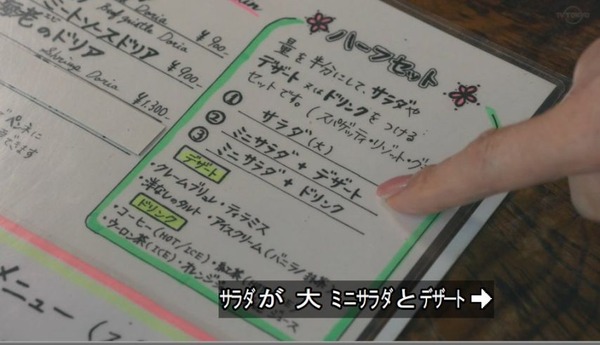 Doria
¥900-
ミートソースドリア
Doria
¥900-
海老のドリア
Shrimp Doria
¥1,300-
ハーフセット
量を半分にして、サラダや
デザート 又は ドリンクを つける
セットです。(スパゲッティ・リゾット・
① サラダ(大)
② ミニサラダ + デザート
③ ミニサラダ + ドリンク
デザート
・クレームブリュレ・ティラミス
・洋なしのタルト・アイスクリーム(バニラ/
ドリンク
・コーヒー(HOT/ICE)・紅茶
・ウーロン茶(ICE)・オレンジ
メニュー
サラダが 大 ミニサラダとデザート➡